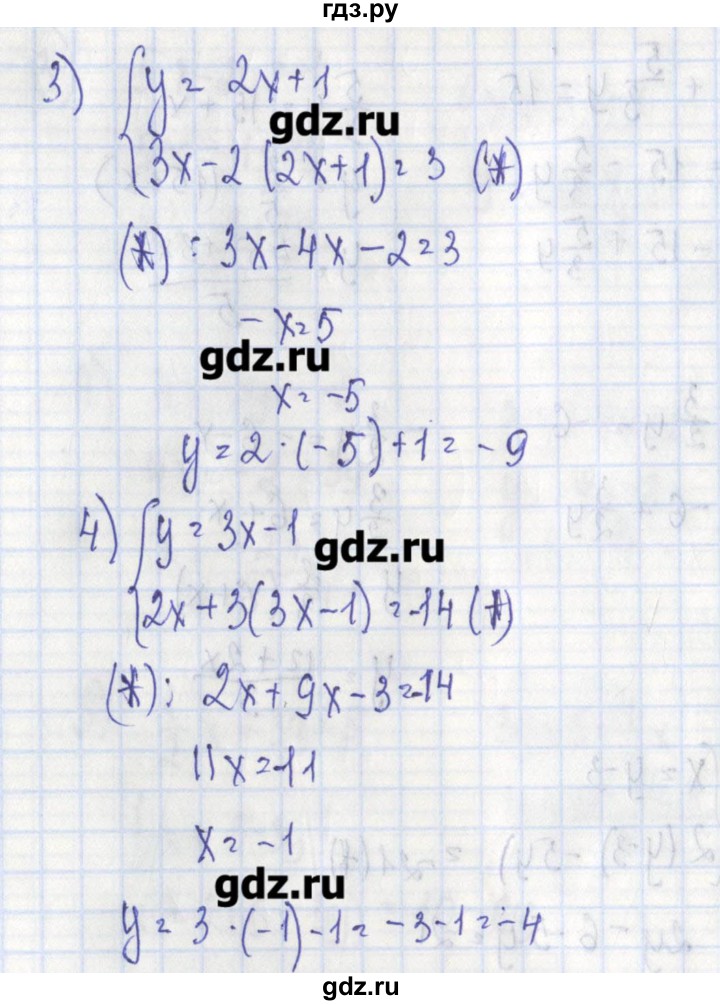 гдз.ру
3) { y = 2x+1
gdz.ru
3x-2(2x+1)=3 (*)
(*): 3x-4x-2=3
-x=5
gdz.ru
x=-5
y=2·(-5)+1=-9
4) { y=3x-1
gdz.ru
2x+3(3x-1)=-14 (*)
(*): 2x+9x-3=-14
11x=-11
x=-1
gdz.ru
y=3·(-1)-1=-3-1=-4
gdz.ru